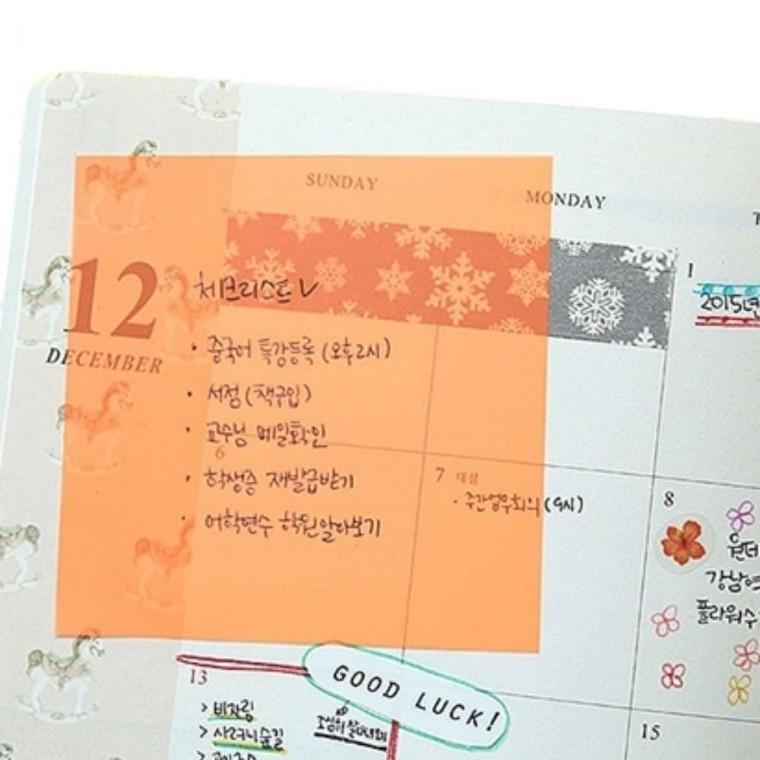 SUNDAY
MONDAY
12
DECEMBER
체크리스트 ✓
• 중국어 특강등록 (오후2시)
• 서점 (책구입)
• 교수님 메일확인
• 학생증 재발급받기
• 어학연수 학원알아보기
1
2015년
6
7 대설
• 주간업무회의 (9시)
8
강남역
플라워수
13
GOOD LUCK!
> 비자림
> 사려니숲길
15